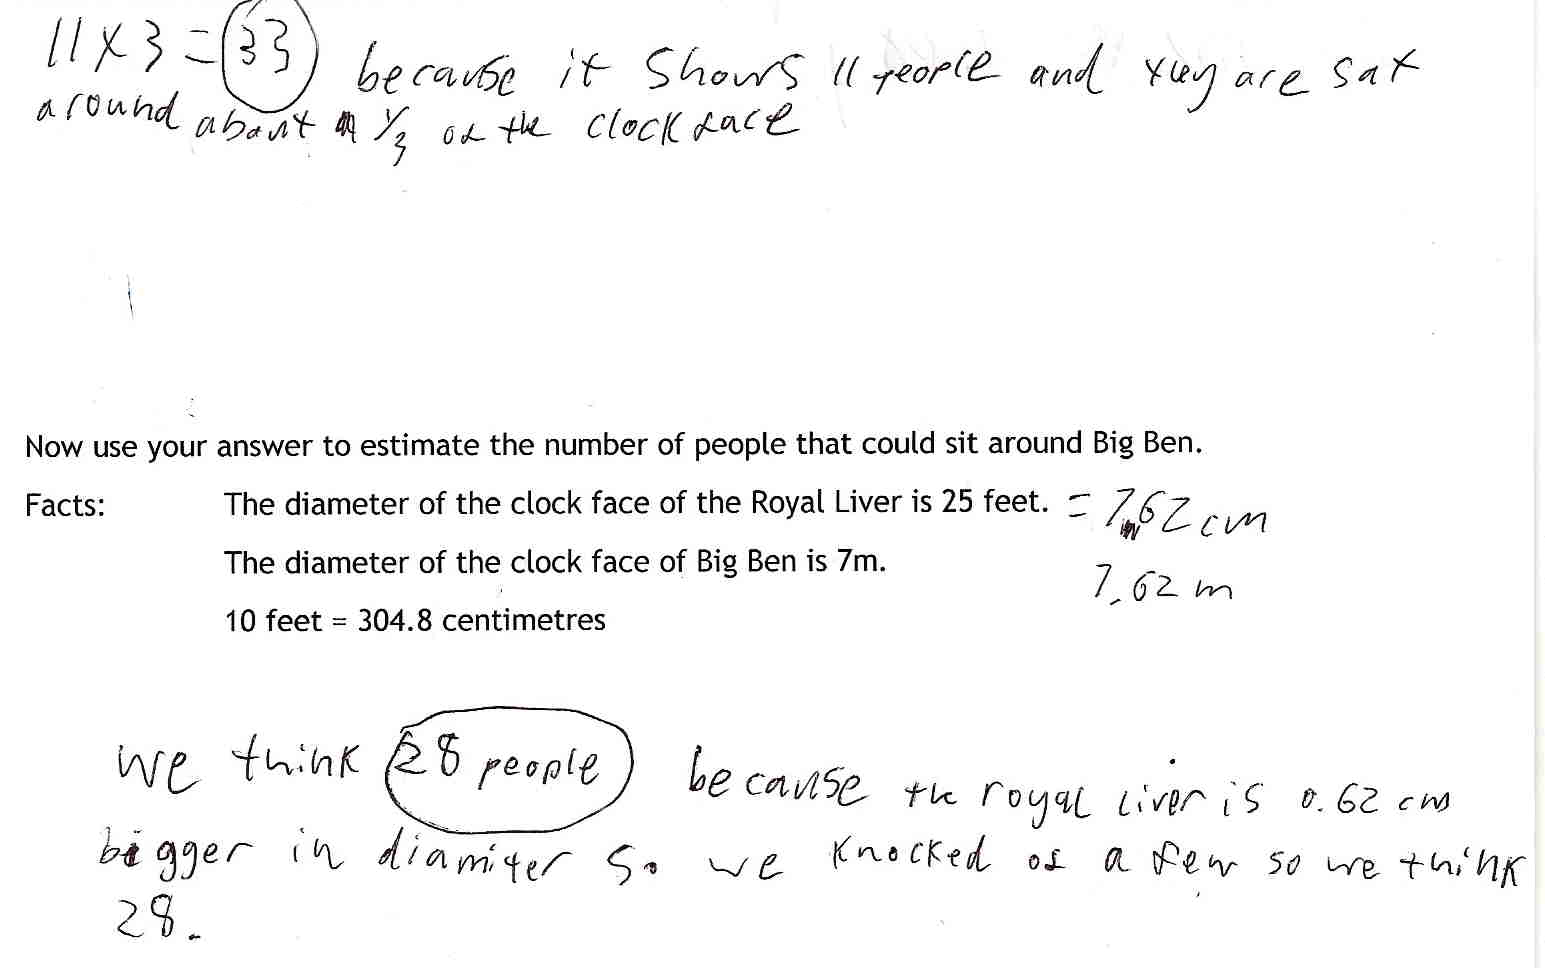 11 x 3 = 33 because it shows 11 people and they are sat
around about 1/3 of the clock face
Now use your answer to estimate the number of people that could sit around Big Ben.
Facts: The diameter of the clock face of the Royal Liver is 25 feet. = 7.62 cm
The diameter of the clock face of Big Ben is 7m. 7.62 m
10 feet = 304.8 centimetres
we think 28 people because the royal liver is 0.62 cm
bigger in diamiter so we knocked of a few so we think
28.